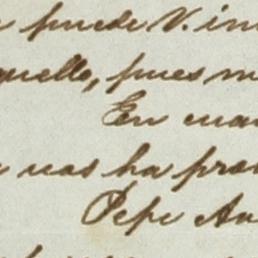 puede V. in
quello, pues m
En cuan
nos ha pro
Pepe An